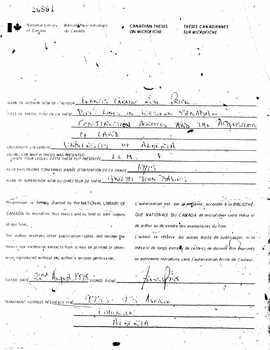 26881
National Library of Canada
Bibliothèque nationale du Canada
CANADIAN THESES ON MICROFICHE
THÈSES CANADIENNES SUR MICROFICHE
NAME OF AUTHOR/NOM DE L'AUTEUR FRANCIS PRICE
TITLE OF THESIS/TITRE DE LA THÈSE PIPE LINES IN WESTERN CANADA:
CONSTRUCTION AND THE ACQUISITION
OF LAND
UNIVERSITY/UNIVERSITÉ UNIVERSITY OF ALBERTA
DEGREE FOR WHICH THESIS WAS PRESENTED/
GRADE POUR LEQUEL CETTE THÈSE FUT PRÉSENTÉE LL.M.
YEAR THIS DEGREE CONFERRED/ANNÉE D'OBTENTION DE CE GRADE 1975
NAME OF SUPERVISOR/NOM DU DIRECTEUR DE THÈSE JOHN DAVIES
Permission is hereby granted to the NATIONAL LIBRARY OF
CANADA to microfilm this thesis and to lend or sell copies
of the film.
The author reserves other publication rights, and neither the
thesis nor extensive extracts from it may be printed or other-
wise reproduced without the author's written permission.
L'autorisation est, par la présente, accordée à la BIBLIOTHÈ-
QUE NATIONALE DU CANADA de microfilmer cette thèse et
de prêter ou de vendre des exemplaires du film.
L'auteur se réserve les autres droits de publication; ni la
thèse ni de longs extraits de celle-ci ne doivent être imprimés
ou autrement reproduits sans l'autorisation écrite de l'auteur.
DATED/DATÉ 22nd August 1975 SIGNED/SIGNÉ
PERMANENT ADDRESS/RÉSIDENCE FIXE
EDMONTON
ALBERTA